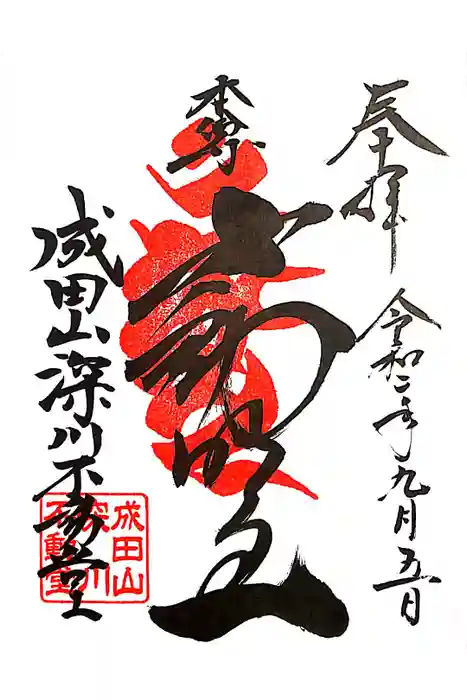 奉拝 令和二年九月五日
本尊
不動明王
成田山深川不動堂
成田山
深川
不動堂